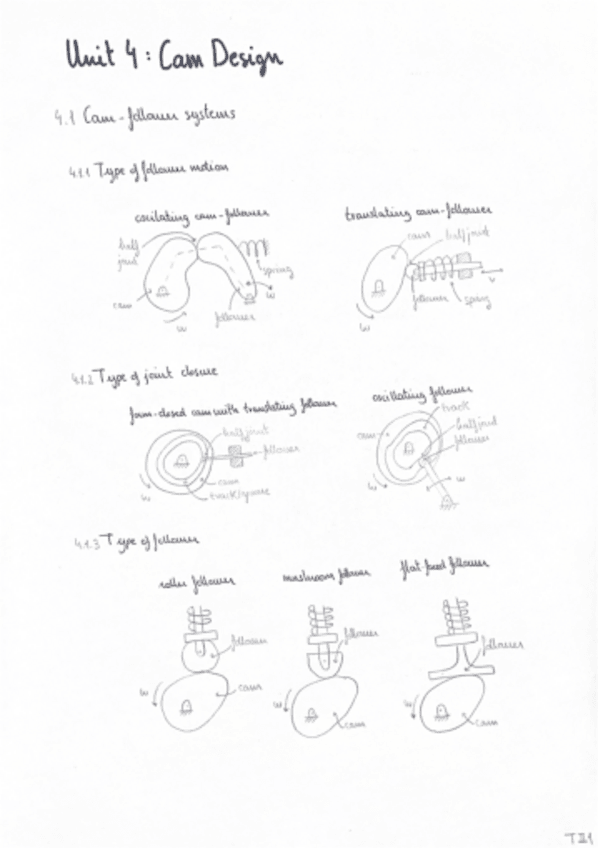 Unit 4: Cam Design
4.1 Cam-follower systems
4.1.1 Type of follower motion
oscilating cam-follower
translating cam-follower
half joint
spring
cam
w
follower
w
cam
half joint
follower
spring
v
w
4.1.2 Type of joint closure
form-closed cam with translating follower
oscillating follower
half joint
follower
cam
w
track
cam
half joint
follower
w
w
4.1.3 Type of follower
roller follower
mushroom follower
flat-faced follower
follower
follower
follower
w
cam
w
cam
w
cam